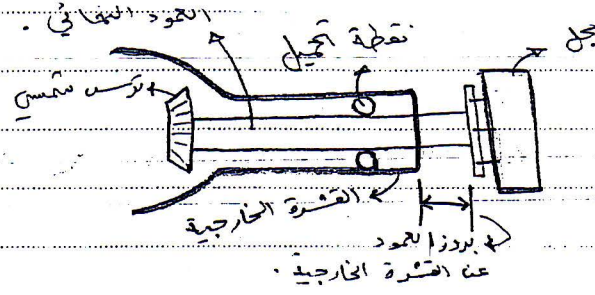 العمود النهائي .
نقطة تحميل
عجل
ترس شمسي
القشرة الخارجية
بروز العمود
عن القشرة الخارجية .